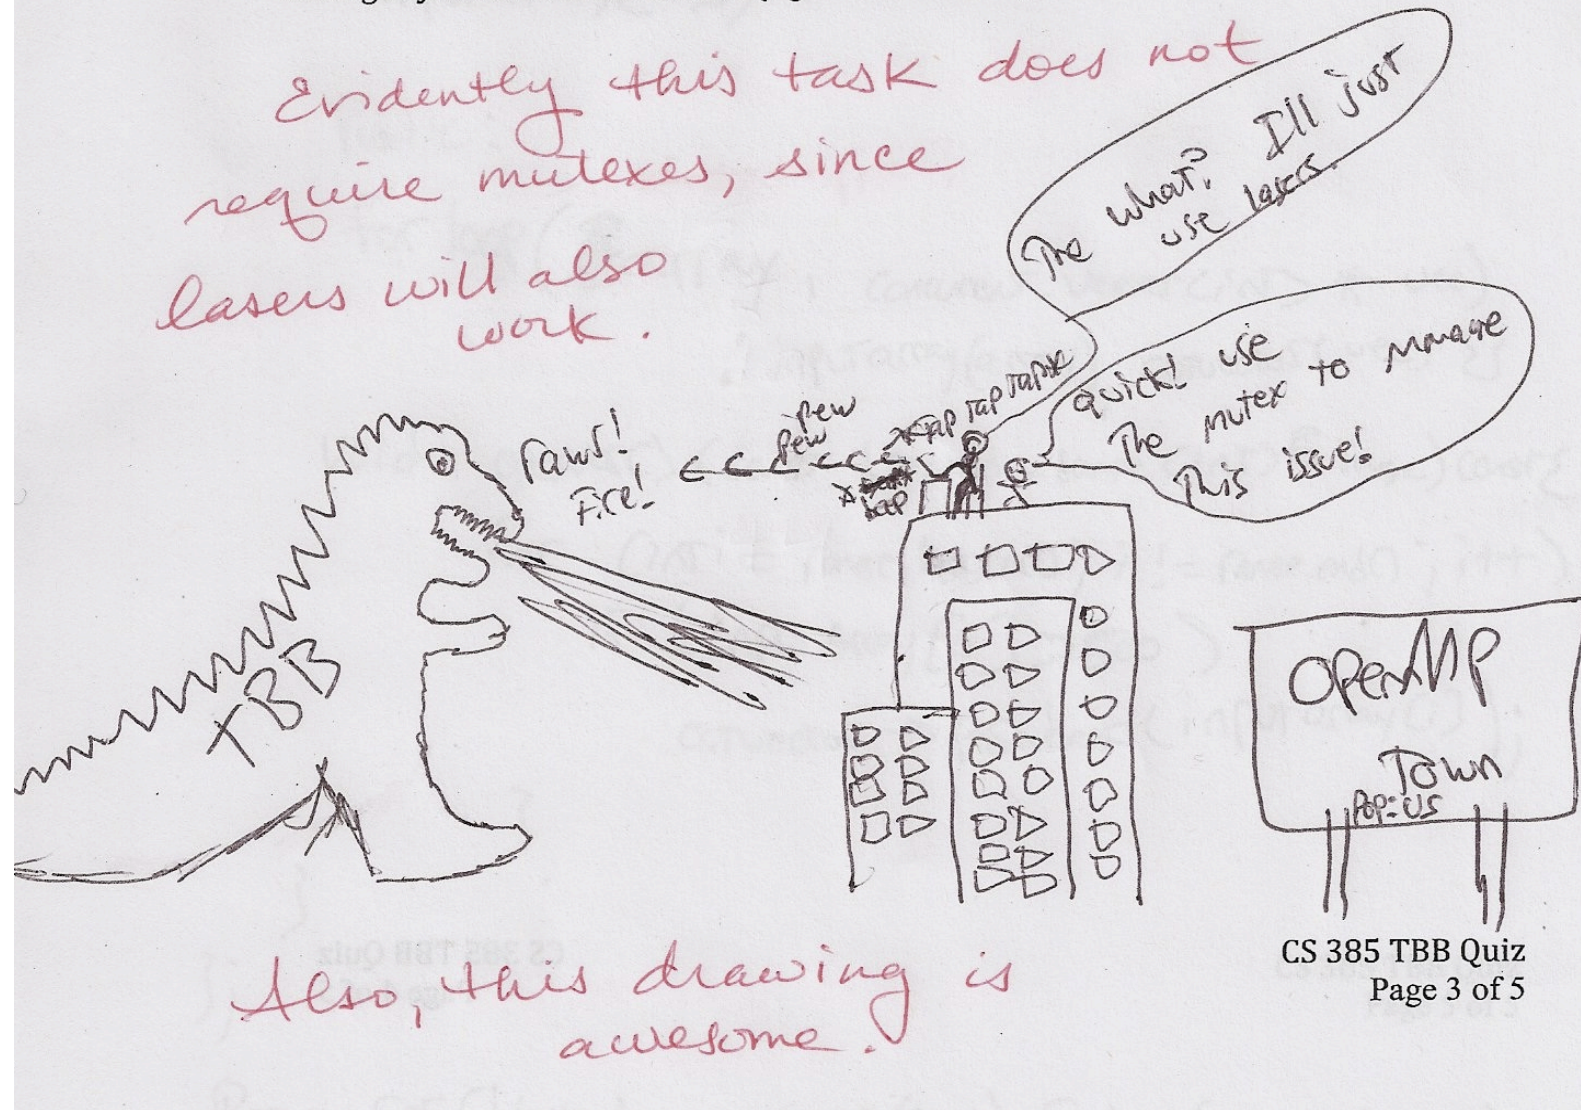 Evidently this task does not
require mutexes, since
lasers will also
work.
The what? I'll just
use lasers.
quick! use
The mutex to manage
This issue!
rawr!
Fire!
pew
pew
TAP TAP TAP
tap
TBB
OpenMP
Town
Pop: us
CS 385 TBB Quiz
Page 3 of 5
Also, this drawing is
awesome.